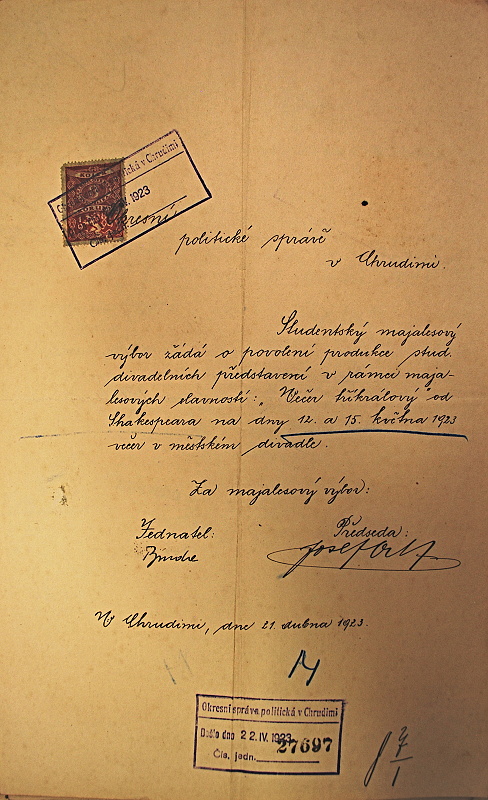 Okresní
politické správě
v Chrudimi.
Studentský majalesový
výbor žádá o povolení produkce stud.
divadelních představení v rámci maja-
lesových slavností: "Večer tříkrálový" od
Shakespeara na dny 12. a 15. května 1923
večer v městském divadle.
Za majalesový výbor:
Jednatel:
Předseda:
Josef
V Chrudimi, dne 21. dubna 1923.
Okresní správa politická v Chrudimi
Došlo dne 22. IV. 1923
27697
Čís. jedn.